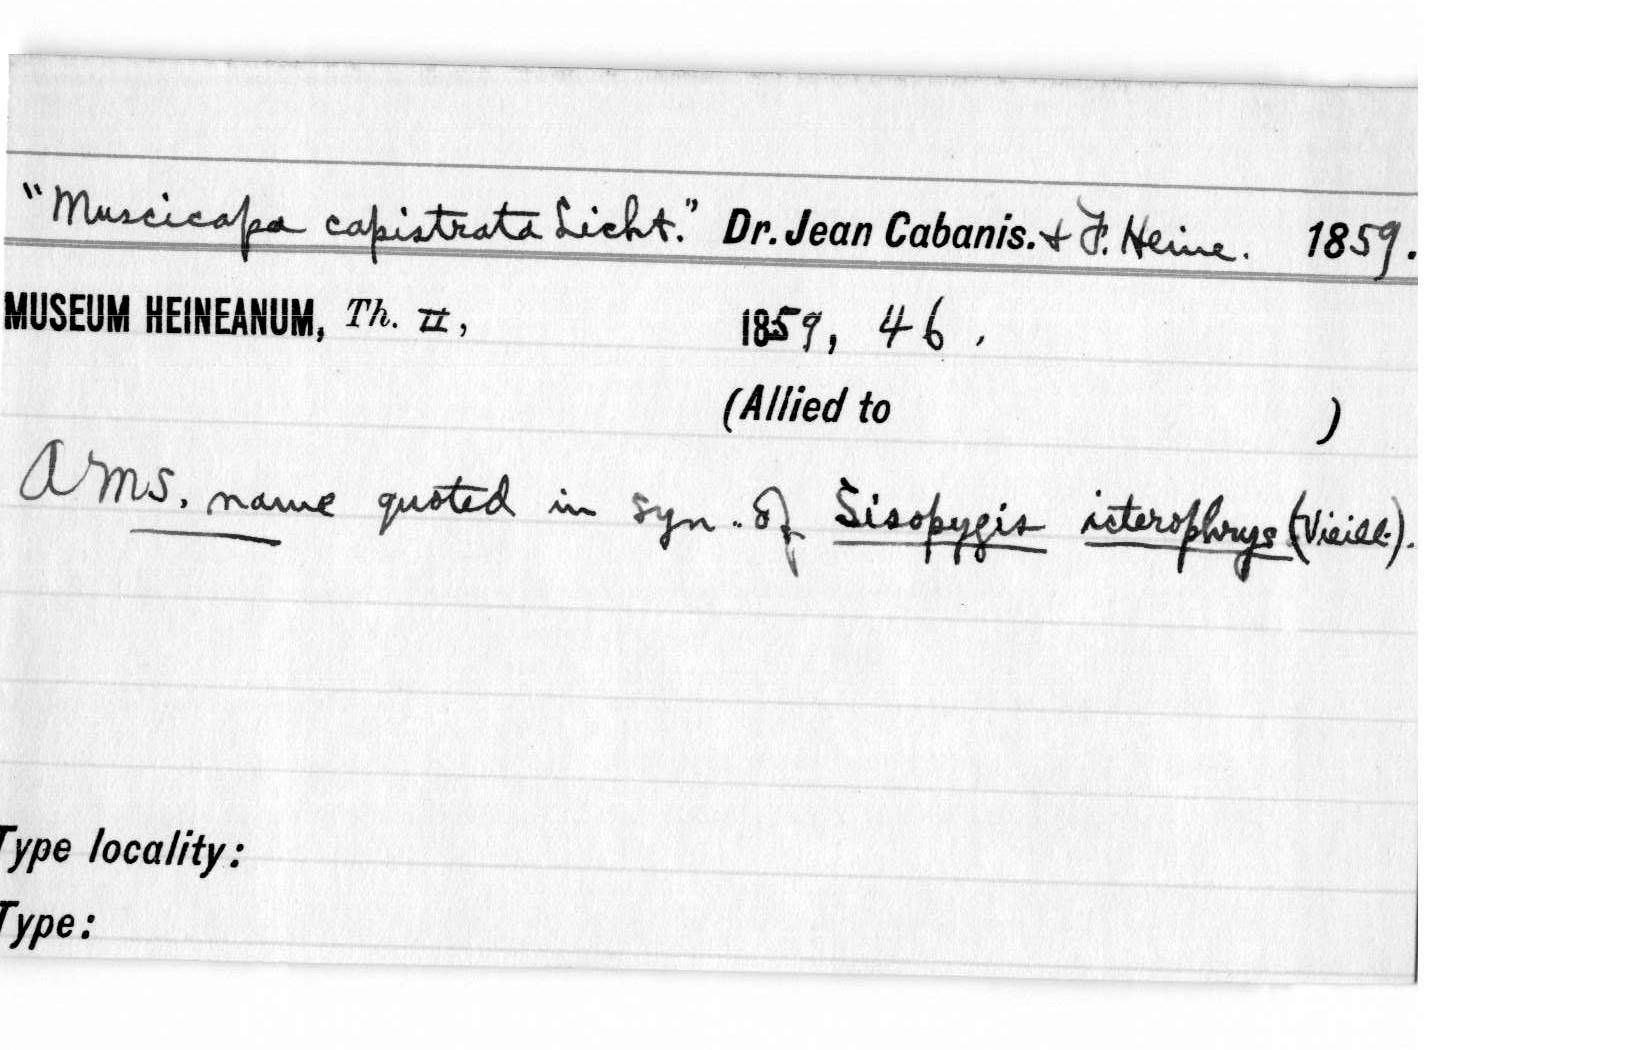 "Muscicapa capistrata Licht." Dr. Jean Cabanis. & F. Heine. 1859.
MUSEUM HEINEANUM, Th. II, 1859, 46.
(Allied to )
A ms. name quoted in syn. of Sisopygis icterophrys (Vieill.).
Type locality:
Type: